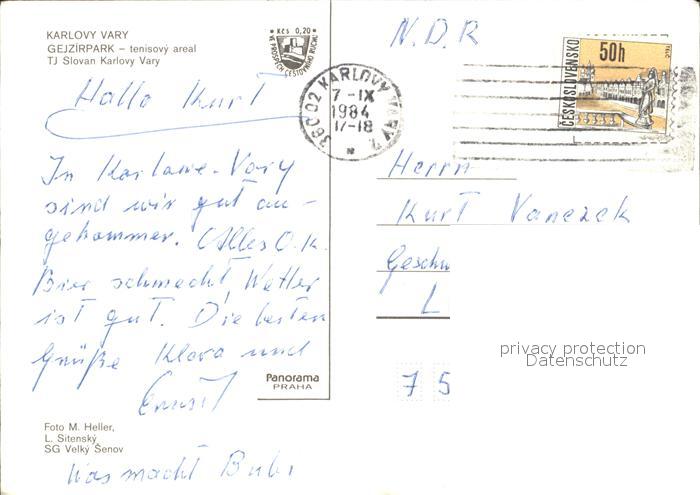 KARLOVY VARY
GEJZÍRPARK – tenisový areal
TJ Slovan Karlovy Vary
Kčs 0,20
VE PROSPĚCH CESTOVNÍHO RUCHU
Hallo Kurt
In Karlowe-Vary
sind wir gut an-
gekommen. Alles O.K.
Bier schmeckt, Wetter
ist gut. Die besten
Grüße Klara und
Ernst
Was macht Bubi
Foto M. Heller,
L. Sitenský
SG Velký Šenov
Panorama
PRAHA
360 02 KARLOVY VARY 2
7-IX
1984
17-18
N.D.R
ČESKOSLOVENSKO
50h
Herrn
Kurt Vanczek
Geschw
L
7 5
privacy protection
Datenschutz